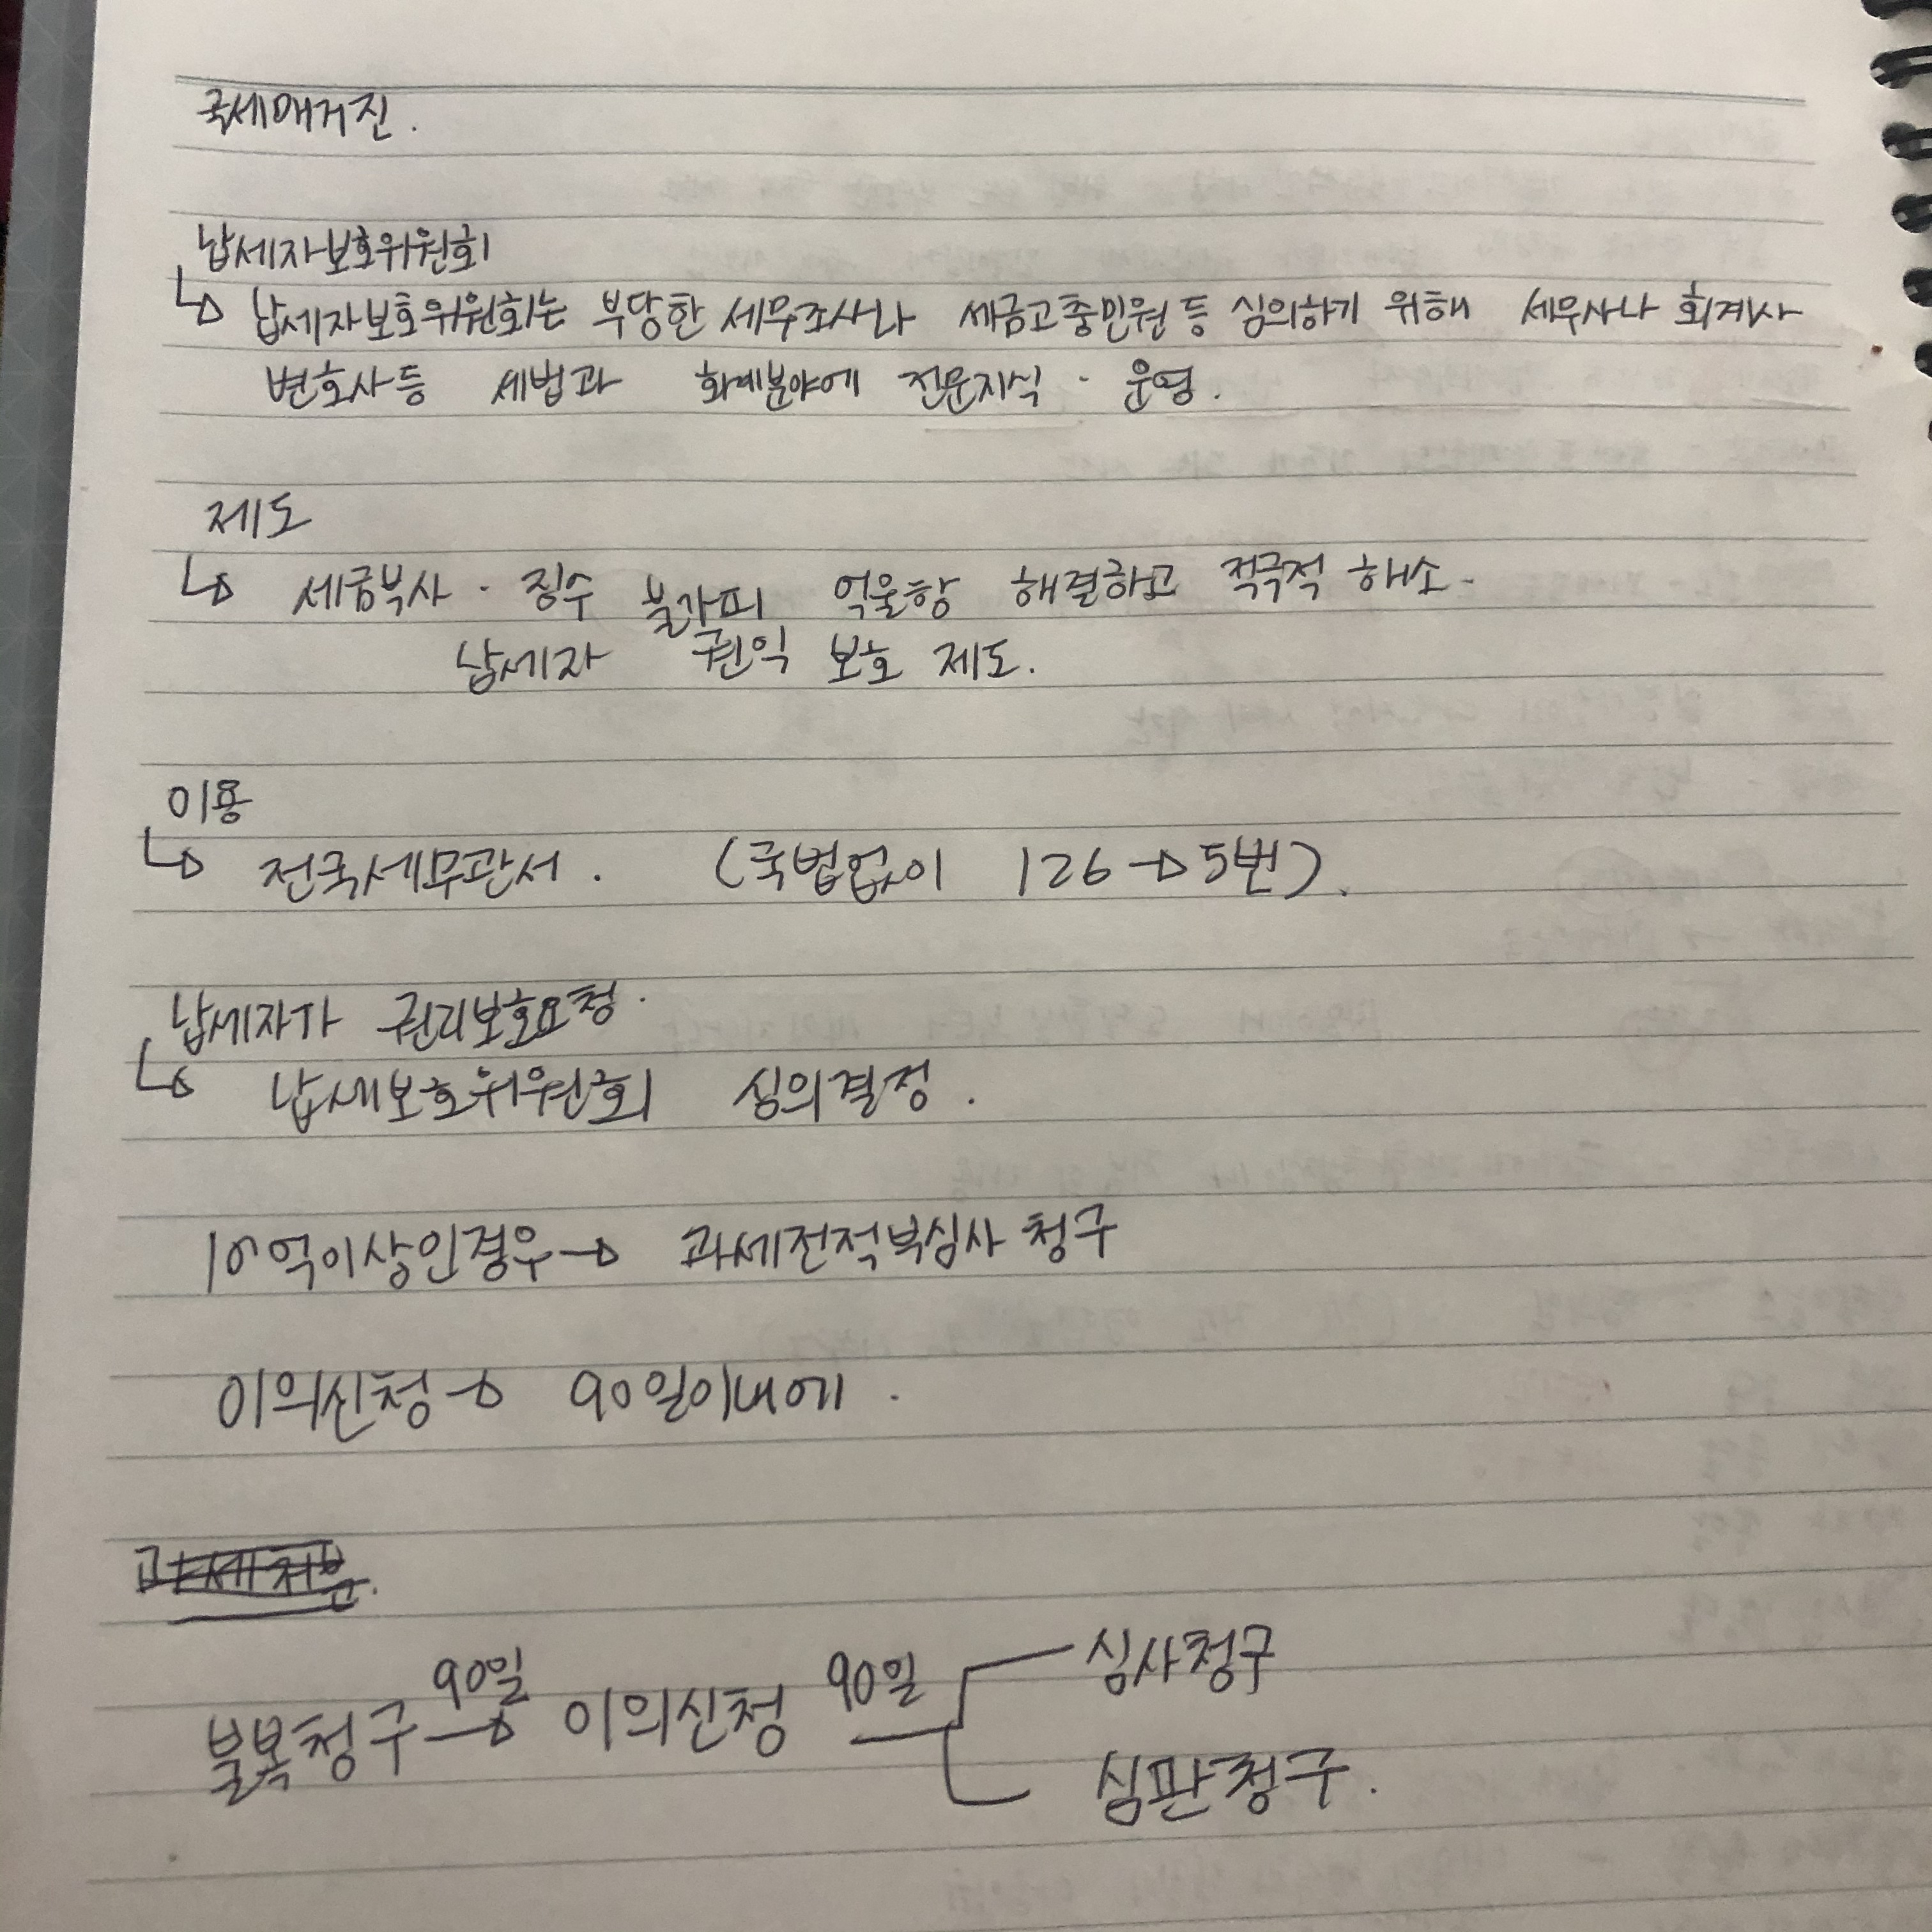 국세매거진.
납세자보호위원회
↳ 납세자보호위원회는 부당한 세무조사나 세금고충민원 등 심의하기 위해 세무사나 회계사
변호사 등 세법과 회계분야에 전문지식 · 운영.
제도
↳ 세금부사 · 징수 불가피 억울항 해결하고 적극적 해소.
납세자 권익 보호 제도.
이용
↳ 전국세무관서. (국법없이 126→5번).
납세자가 권리보호요청.
↳ 납세보호위원회 심의결정.
10억이상인경우→ 과세전적부심사 청구
이의신청→ 90일이내에.
불복청구 90일→ 이의신청 90일 심사청구
심판청구.